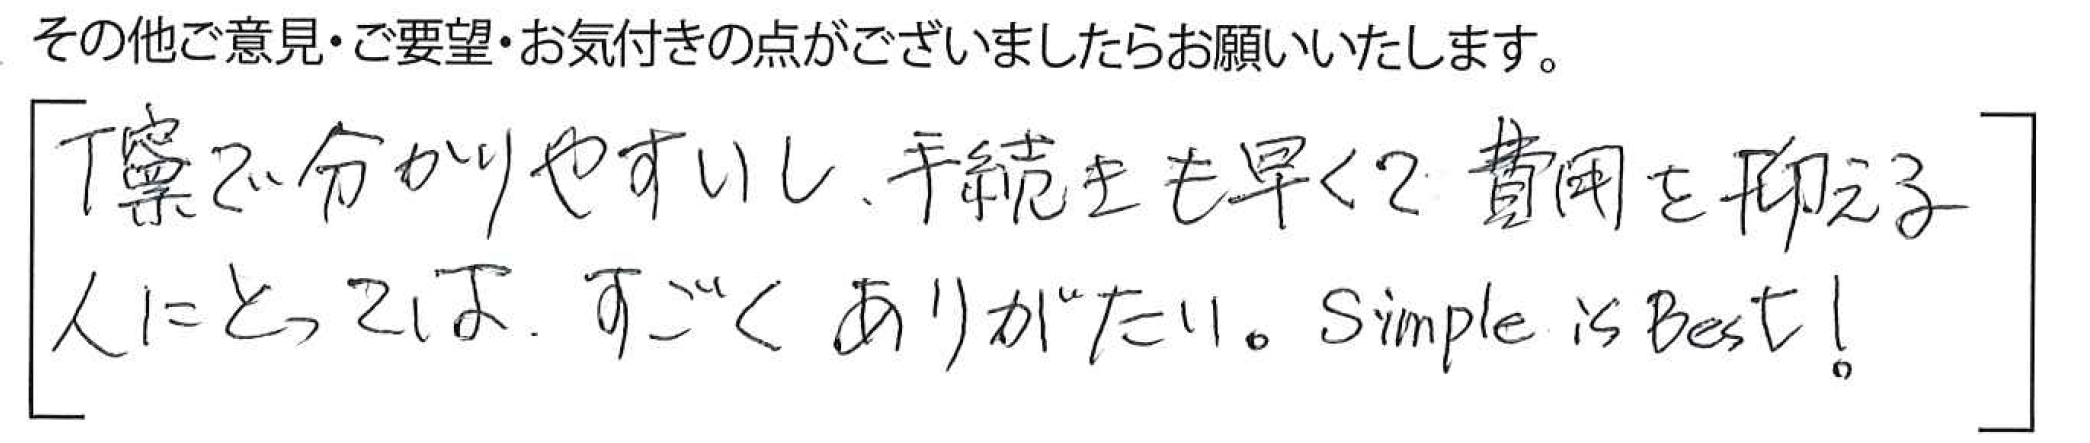 その他ご意見・ご要望・お気付きの点がございましたらお願いいたします。
丁寧で分かりやすいし、手続きも早くて費用を抑える
人にとっては、すごくありがたい。Simple is Best!